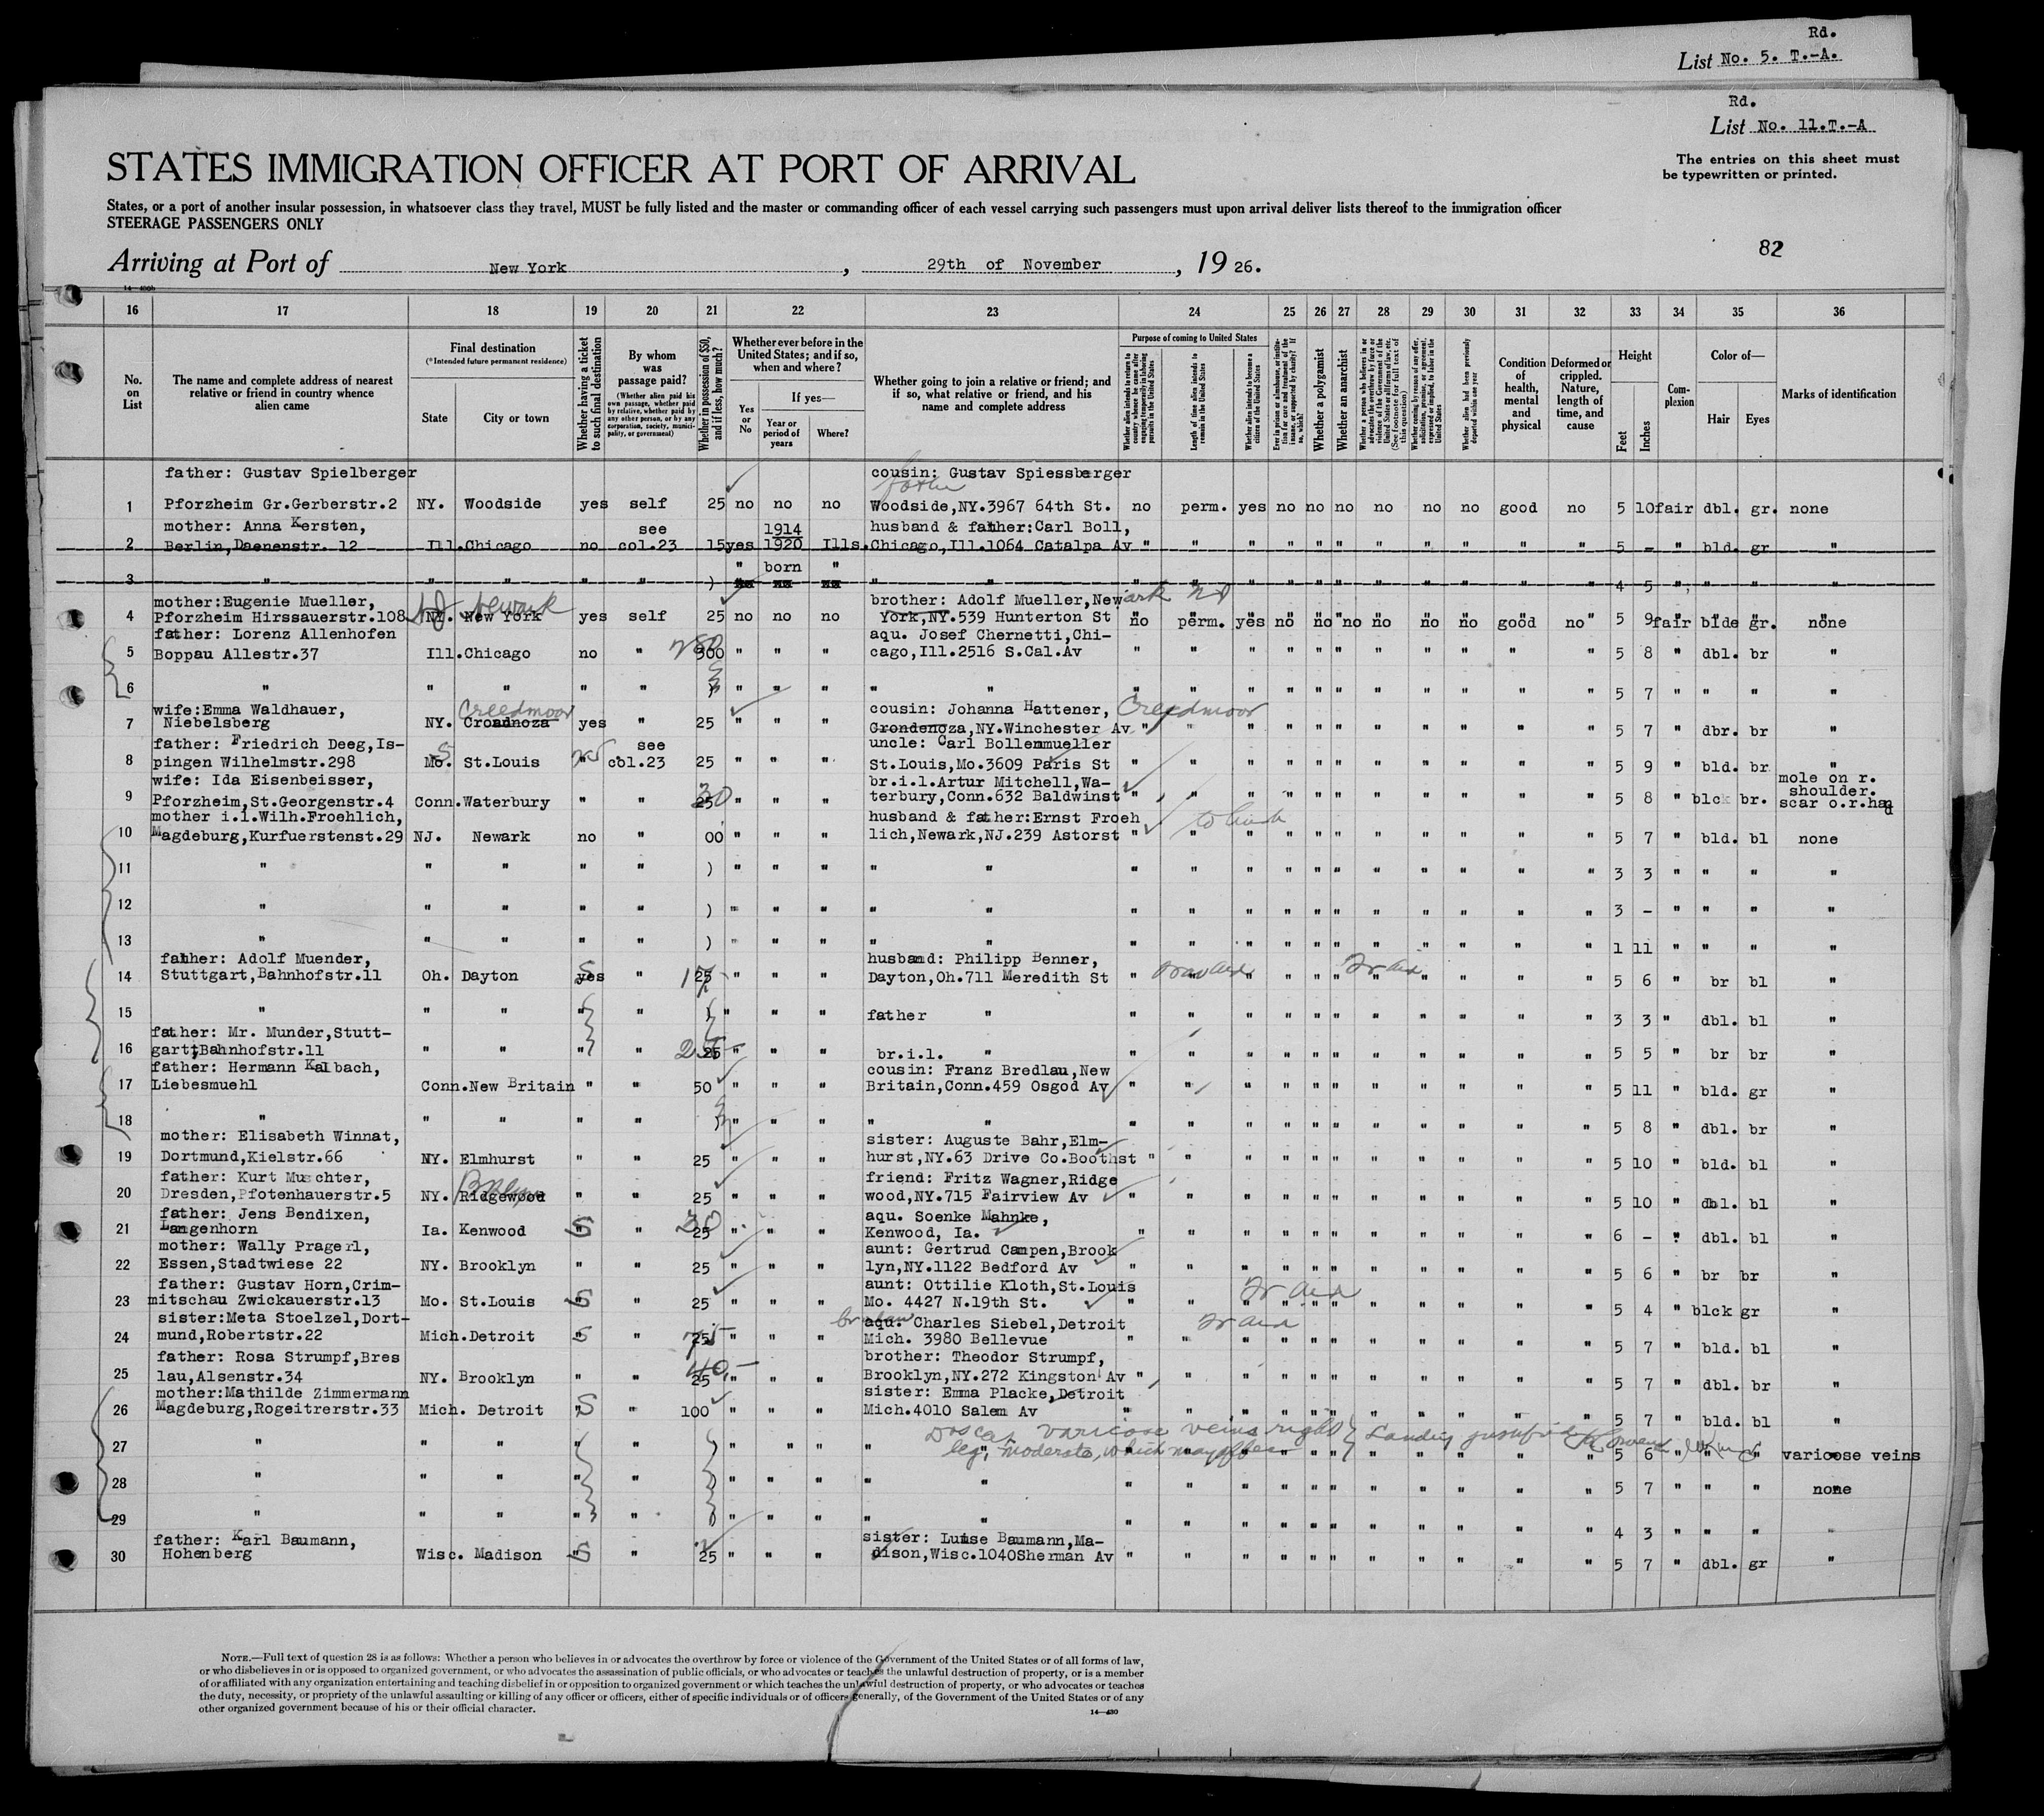 Rd.
List No. 5. T.-A.
Rd.
List No. 11.T.-A
STATES IMMIGRATION OFFICER AT PORT OF ARRIVAL
The entries on this sheet must
be typewritten or printed.
States, or a port of another insular possession, in whatsoever class they travel, MUST be fully listed and the master or commanding officer of each vessel carrying such passengers must upon arrival deliver lists thereof to the immigration officer
STEERAGE PASSENGERS ONLY
82
Arriving at Port of New York, 29th of November, 19 26.
14—430b
16 17 18 19 20 21 22 23 24 25 26 27 28 29 30 31 32 33 34 35 36
No. on List
The name and complete address of nearest relative or friend in country whence alien came
Final destination
(*Intended future permanent residence)
State City or town
Whether having a ticket to such final destination
By whom was passage paid?
(Whether alien paid his own passage, whether paid by relative, whether paid by any other person, or by any corporation, society, municipality, or government)
Whether in possession of $50, and if less, how much?
Whether ever before in the United States; and if so, when and where?
Yes or No
If yes—
Year or period of years
Where?
Whether going to join a relative or friend; and if so, what relative or friend, and his name and complete address
Purpose of coming to United States
Whether alien intends to return to country whence he came after engaging temporarily in laboring pursuits in the United States
Length of time alien intends to remain in the United States
Whether alien intends to become a citizen of the United States
Ever in prison or almshouse, or institution for care and treatment of the insane, or supported by charity? If so, which?
Whether a polygamist
Whether an anarchist
Whether a person who believes in or advocates the overthrow by force or violence of the Government of the United States or all forms of law, etc. (See footnote for full text of this question)
Whether coming by reason of any offer, solicitation, promise, or agreement, expressed or implied, to labor in the United States
Whether alien had been previously deported within one year
Condition of health, mental and physical
Deformed or crippled. Nature, length of time, and cause
Height
Feet Inches
Complexion
Color of—
Hair Eyes
Marks of identification
father: Gustav Spielberger cousin: Gustav Spiessberger
1 Pforzheim Gr.Gerberstr.2 NY. Woodside yes self 25 no no no Woodside,NY.3967 64th St. no perm. yes no no no no no no good no 5 10 fair dbl. gr. none
mother: Anna Kersten, see 1914 husband & father:Carl Boll,
2 Berlin,Daenenstr. 12 Ill.Chicago no col.23 15 yes 1920 Ills. Chicago,Ill.1064 Catalpa Av " " " " " " " " " " " 5 - " bld. gr "
" born "
3 " " " " " ) " " " " " " " " " " " " " 4 5 " " " "
mother:Eugenie Mueller, Newark brother: Adolf Mueller,Newark NJ
4 Pforzheim Hirssauerstr.108 NY. New York yes self 25 no no no York,NY.539 Hunterton St no perm. yes no no no no no no good no 5 9 fair blde gr. none
father: Lorenz Allenhofen aqu. Josef Chernetti,Chi-
5 Boppau Allestr.37 Ill.Chicago no " 300 " " " cago,Ill.2516 S.Cal.Av " " " " " " " " " " " 5 8 " dbl. br "
6 " " " " " " " " " " " " " " " " " " " " " 5 7 " " " "
wife:Emma Waldhauer, Creedmoor cousin: Johanna Hattener, Creedmoor
7 Niebelsberg NY. Croadnoza yes " 25 " " " Grondenoza,NY.Winchester Av " " " " " " " " " " " 5 7 " dbr. br "
father: Friedrich Deeg,Is- see uncle: Carl Bollenmueller
8 pingen Wilhelmstr.298 Mo. St.Louis " col.23 25 " " " St.Louis,Mo.3609 Paris St " " " " " " " " " " " 5 9 " bld. br "
wife: Ida Eisenbeisser, br.i.l.Artur Mitchell,Wa- mole on r. shoulder.
9 Pforzheim,St.Georgenstr.4 Conn.Waterbury " " 25 " " " terbury,Conn.632 Baldwinst " " " " " " " " " " " 5 8 " blck br. scar o.r.had
mother i.l.Wilh.Froehlich, husband & father:Ernst Froeh
10 Magdeburg,Kurfuerstenst.29 NJ. Newark no " 00 " " " lich,Newark,NJ.239 Astorst " " " " " " " " " " " 5 7 " bld. bl none
11 " " " " " ) " " " " " " " " " " " " " " " " 3 3 " " " "
12 " " " " " ) " " " " " " " " " " " " " " " " 3 - " " " "
13 " " " " " ) " " " " " " " " " " " " " " " " 1 11 " " " "
father: Adolf Muender, husband: Philipp Benner,
14 Stuttgart,Bahnhofstr.11 Oh. Dayton yes " 25 " " " Dayton,Oh.711 Meredith St " " " " " " " " " " " 5 6 " br bl "
15 " " " " " " " " father " " " " " " " " " " " " 3 3 " dbl. bl "
father: Mr. Munder,Stutt-
16 gart,Bahnhofstr.11 " " " " 25 " " " br.i.l. " " " " " " " " " " " " 5 5 " br br "
father: Hermann Kalbach, cousin: Franz Bredlau,New
17 Liebesmuehl Conn.New Britain " " 50 " " " Britain,Conn.459 Osgod Av " " " " " " " " " " " 5 11 " bld. gr "
18 " " " " " " " " " " " " " " " " " " " " " 5 8 " dbl. br "
mother: Elisabeth Winnat, sister: Auguste Bahr,Elm-
19 Dortmund,Kielstr.66 NY. Elmhurst " " 25 " " " hurst,NY.63 Drive Co.Boothst " " " " " " " " " " " 5 10 " bld. bl "
father: Kurt Muschter, friend: Fritz Wagner,Ridge
20 Dresden,Pfotenhauerstr.5 NY. Ridgewood " " 25 " " " wood,NY.715 Fairview Av " " " " " " " " " " " 5 10 " dbl. bl "
father: Jens Bendixen, aqu. Soenke Mahnke,
21 Langenhorn Ia. Kenwood " " 25 " " " Kenwood, Ia. " " " " " " " " " " " 6 - " dbl. bl "
mother: Wally Pragerl, aunt: Gertrud Campen,Brook
22 Essen,Stadtwiese 22 NY. Brooklyn " " 25 " " " lyn,NY.1122 Bedford Av " " " " " " " " " " " 5 6 " br br "
father: Gustav Horn,Crim- aunt: Ottilie Kloth,St.Louis
23 mitschau Zwickauerstr.13 Mo. St.Louis " " 25 " " " Mo. 4427 N.19th St. " " " " " " " " " " " 5 4 " blck gr "
sister:Meta Stoelzel,Dort- aqu. Charles Siebel,Detroit
24 mund,Robertstr.22 Mich.Detroit " " 25 " " " Mich. 3980 Bellevue " " " " " " " " " " " 5 7 " bld. bl "
father: Rosa Strumpf,Bres brother: Theodor Strumpf,
25 lau,Alsenstr.34 NY. Brooklyn " " 25 " " " Brooklyn,NY.272 Kingston Av " " " " " " " " " " " 5 7 " dbl. br "
mother:Mathilde Zimmermann sister: Emma Placke,Detroit
26 Magdeburg,Rogeitrerstr.33 Mich. Detroit " " 100 " " " Mich.4010 Salem Av " " " " " " " " " " " 5 7 " bld. bl "
varicose veins right
leg, moderate, which may affect
27 " " " " " ) " " " " " " " " " " " " " " " " 5 6 " " " varicose veins
28 " " " " " ) " " " " " " " " " " " " " " " " 5 7 " " " none
29 " " " " " ) " " " " " " " " " " " " " " " " 4 3 " " " "
father: Karl Baumann, sister: Luise Baumann,Ma-
30 Hohenberg Wisc. Madison " " 25 " " " dison,Wisc.1040Sherman Av " " " " " " " " " " " 5 7 " dbl. gr "
NOTE.—Full text of question 28 is as follows: Whether a person who believes in or advocates the overthrow by force or violence of the Government of the United States or of all forms of law,
or who disbelieves in or is opposed to organized government, or who advocates the assassination of public officials, or who advocates or teaches the unlawful destruction of property, or is a member
of or affiliated with any organization entertaining and teaching disbelief in or opposition to organized government or which teaches the unlawful destruction of property, or who advocates or teaches
the duty, necessity, or propriety of the unlawful assaulting or killing of any officer or officers, either of specific individuals or of officers generally, of the Government of the United States or of any
other organized government because of his or their official character.
14—430